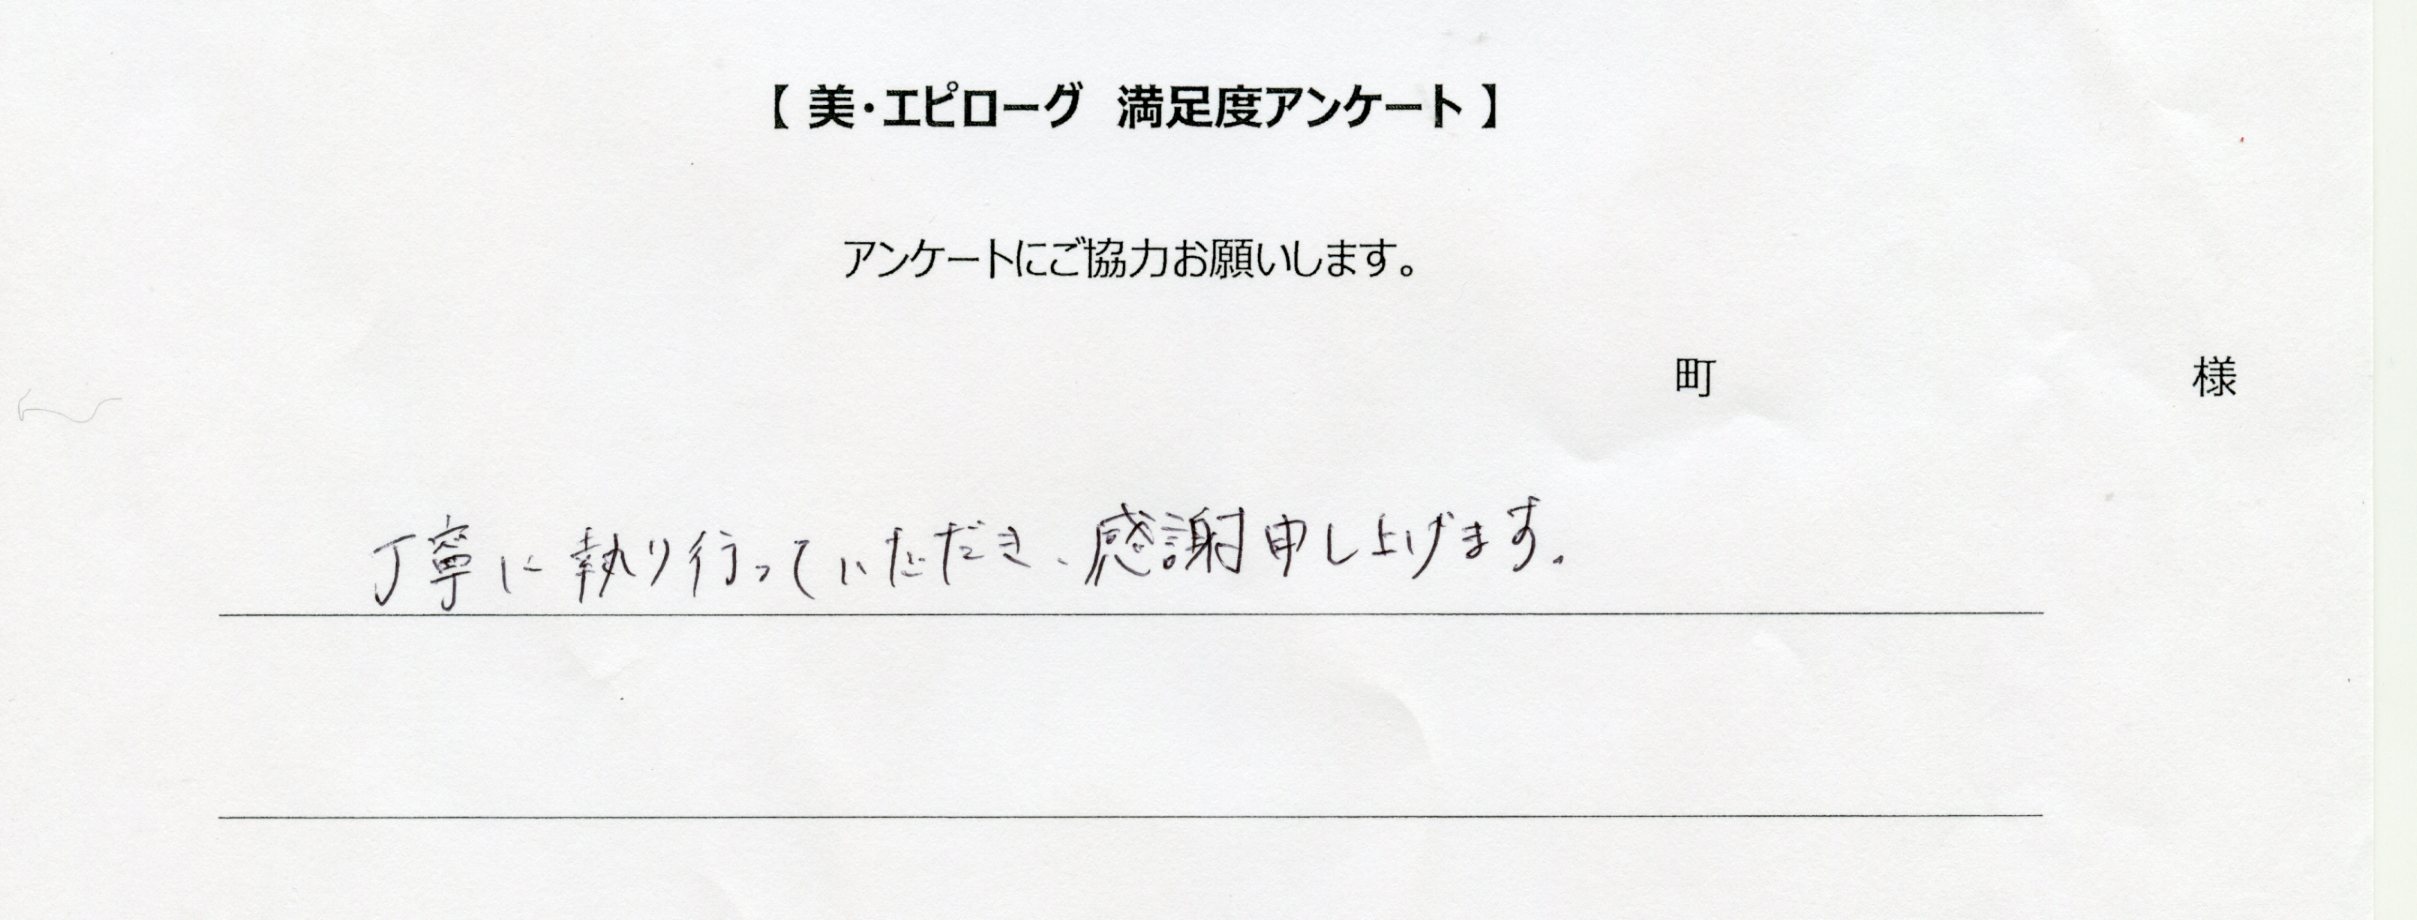 【 美・エピローグ　満足度アンケート 】
アンケートにご協力お願いします。
町　様
丁寧に執り行っていただき、感謝申し上げます。